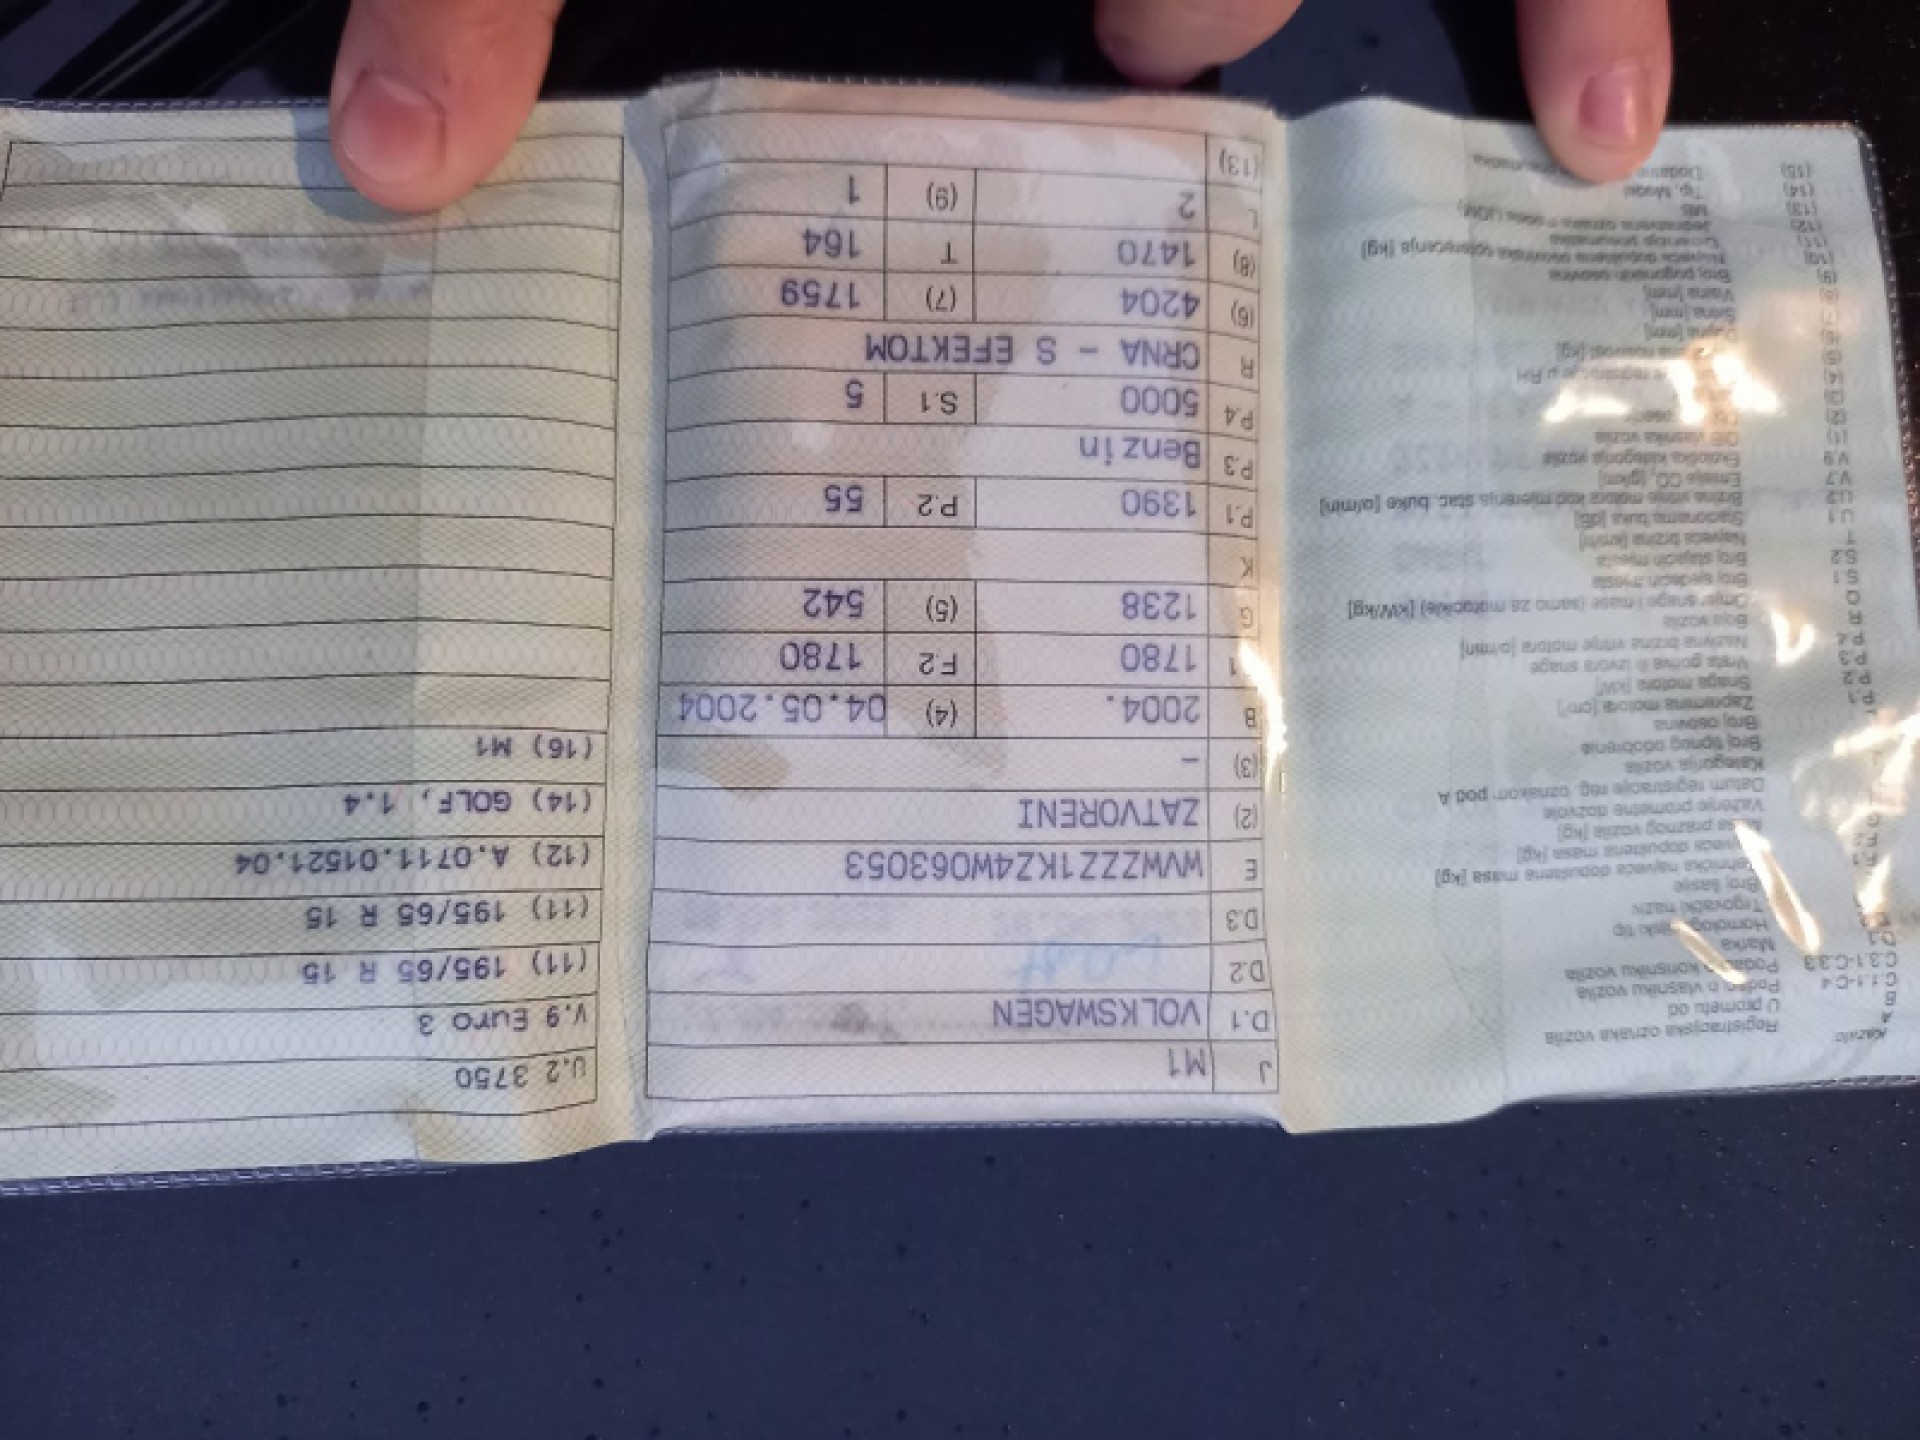 A Registracijska oznaka vozila
B U prometu od
C.1.1-C.4 Podaci o vlasniku vozila
C.3.1-C.3.3 Podaci o korisniku vozila
D.1 Marka
tip
Trgovački naziv
Broj šasije
najveća dopuštena masa [kg]
dopuštena masa [kg]
praznog vozila [kg]
Važenje prometne dozvole
Datum registracije reg. oznakom pod A
Kategorija vozila
Broj tipnog odobrenja
Broj osovina
P.1 Zapremina motora [cm³]
P.2 Snaga motora [kW]
P.3 Vrsta goriva ili izvora snage
P.4 Nazivna brzina vrtnje motora [o/min]
R Boja vozila
Q Omjer snage i mase (samo za motocikle) [kW/kg]
S.1 Broj sjedećih mjesta
S.2 Broj stajaćih mjesta
T Najveća brzina [km/h]
U.1 Stacionarna buka [dB]
U.2 Brzina vrtnje motora kod mjerenja stac. buke [o/min]
V.7 Emisija CO₂ [g/km]
V.9 Ekološka kategorija vozila
(1) OIB vlasnika vozila
(2)
(3)
(4) registracije u RH
(5) nosivost [kg]
(6) Dužina [mm]
(7) Širina [mm]
(8) Visina [mm]
(9) Broj pogonskih osovina
(10) Najveća dopuštena osovinska opterećenja [kg]
(11) Dimenzije pneumatika
(12) Jedinstvena oznaka
(13) MB
(14) Tip, Model
(15)
J M1
D.1 VOLKSWAGEN
D.2
D.3
E WVWZZZ1KZ4W063053
(2) ZATVORENI
(3) -
B 2004. (4) 04.05.2004
1780 F.2 1780
G 1238 (5) 542
K
P.1 1390 P.2 55
P.3 Benzin
P.4 5000 S.1 5
R CRNA - S EFEKTOM
(6) 4204 (7) 1759
(8) 1470 T 164
L 2 (9) 1
(13)
U.2 3750
V.9 Euro 3
(11) 195/65 R 15
(11) 195/65 R 15
(12) A.0711.01521.04
(14) GOLF, 1.4
(16) M1